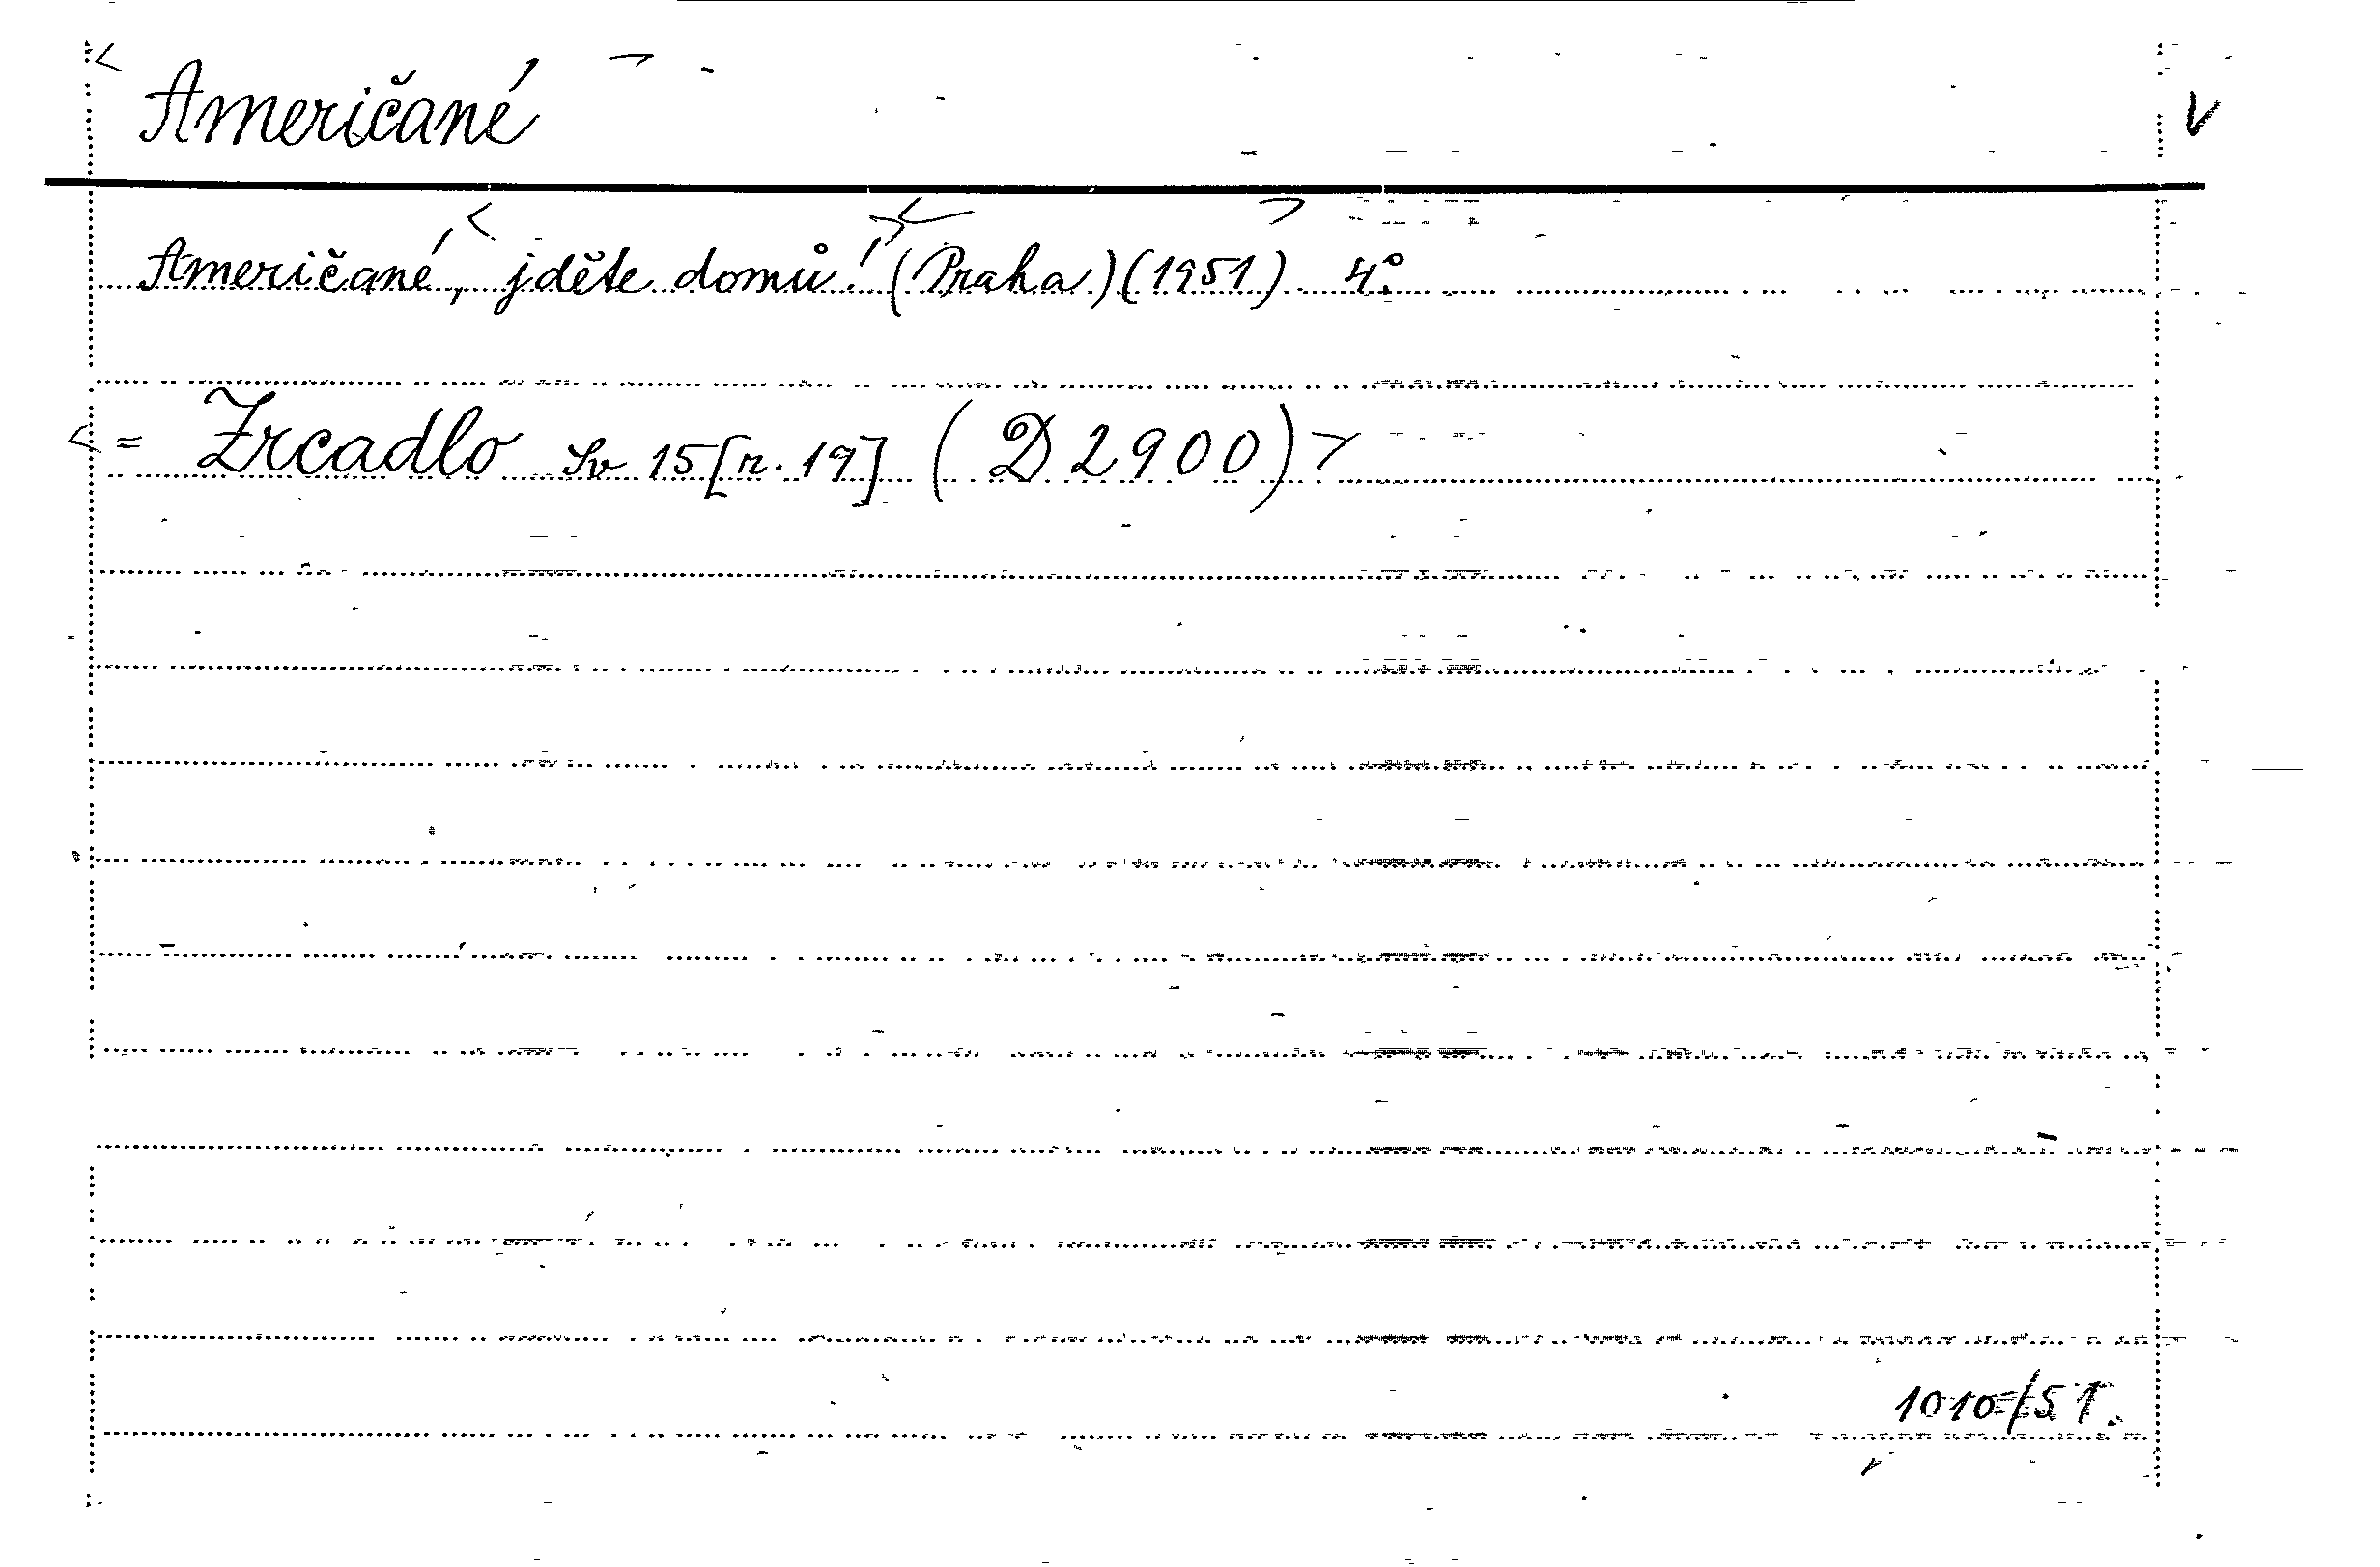 Američané
Američané, jděte domů! (Praha) (1951) 4°.
= Zrcadlo Sv 15 [r. 19] (D 2900)
1010/51.